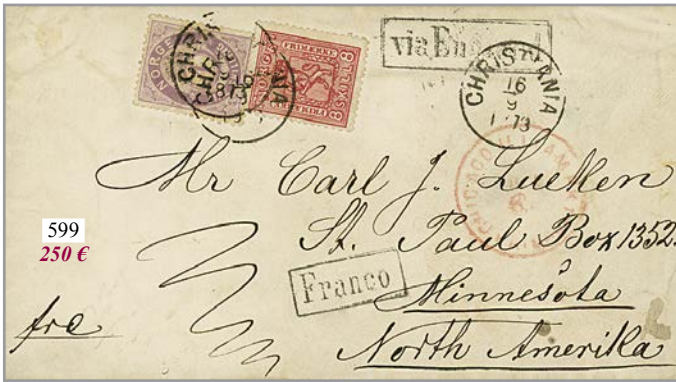 NORGE
FRIMÆRKE
8 SKILL. 8
CHRISTIANIA
1873
via
CHRISTIANIA
16
9
1873
CHICAGO ILL. AM.
Mr Carl J. Lueken
St. Paul Box 1352.
599
250 €
Franco
Minnesota
fco
North Amerika